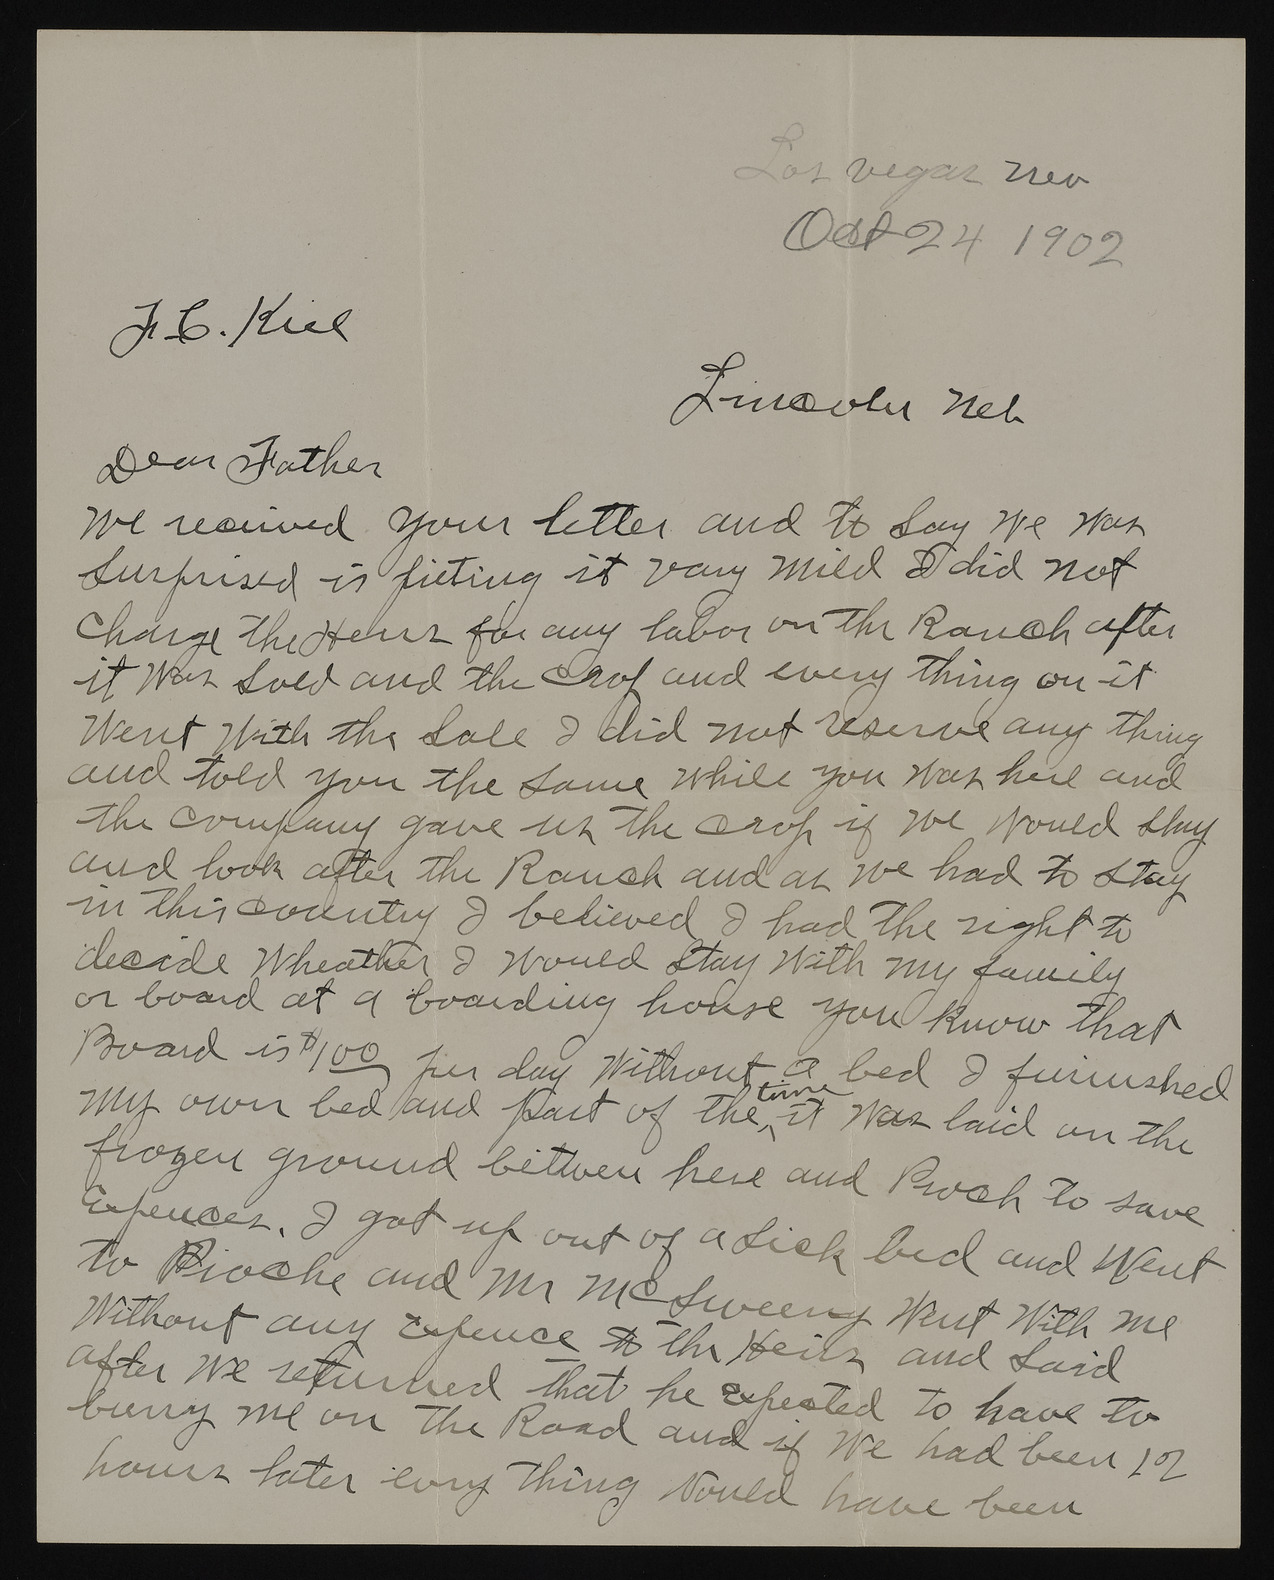 Las vegas Nev
Oct 24 1902
F C. Kiel
Lincoln Neb
Dear Father
We received your letter and to say we was
surprised is puting it vary mild I did not
charge the Heirs for any labor on the Ranch after
it was sold and the crop and every thing on it
went with the sale I did not reserve any thing
and told you the same while you was here and
the company gave us the crop if we would stay
and look after the Ranch and as we had to stay
in this country I believed I had the right to
decide wheather I would stay with my family
or board at a boarding house you know that
Board is $1,00 per day without a bed I furnished
my own bed and part of the time it was laid on the
frozen ground bettwen here and Pioch to save
expences. I got up out of a sick bed and went
to Pioche and Mr McSweeny went with me
without any expence to the Heirs and said
after we returned that he expected to have to
burry me on the Road and if we had been 12
hours later evry thing would have been